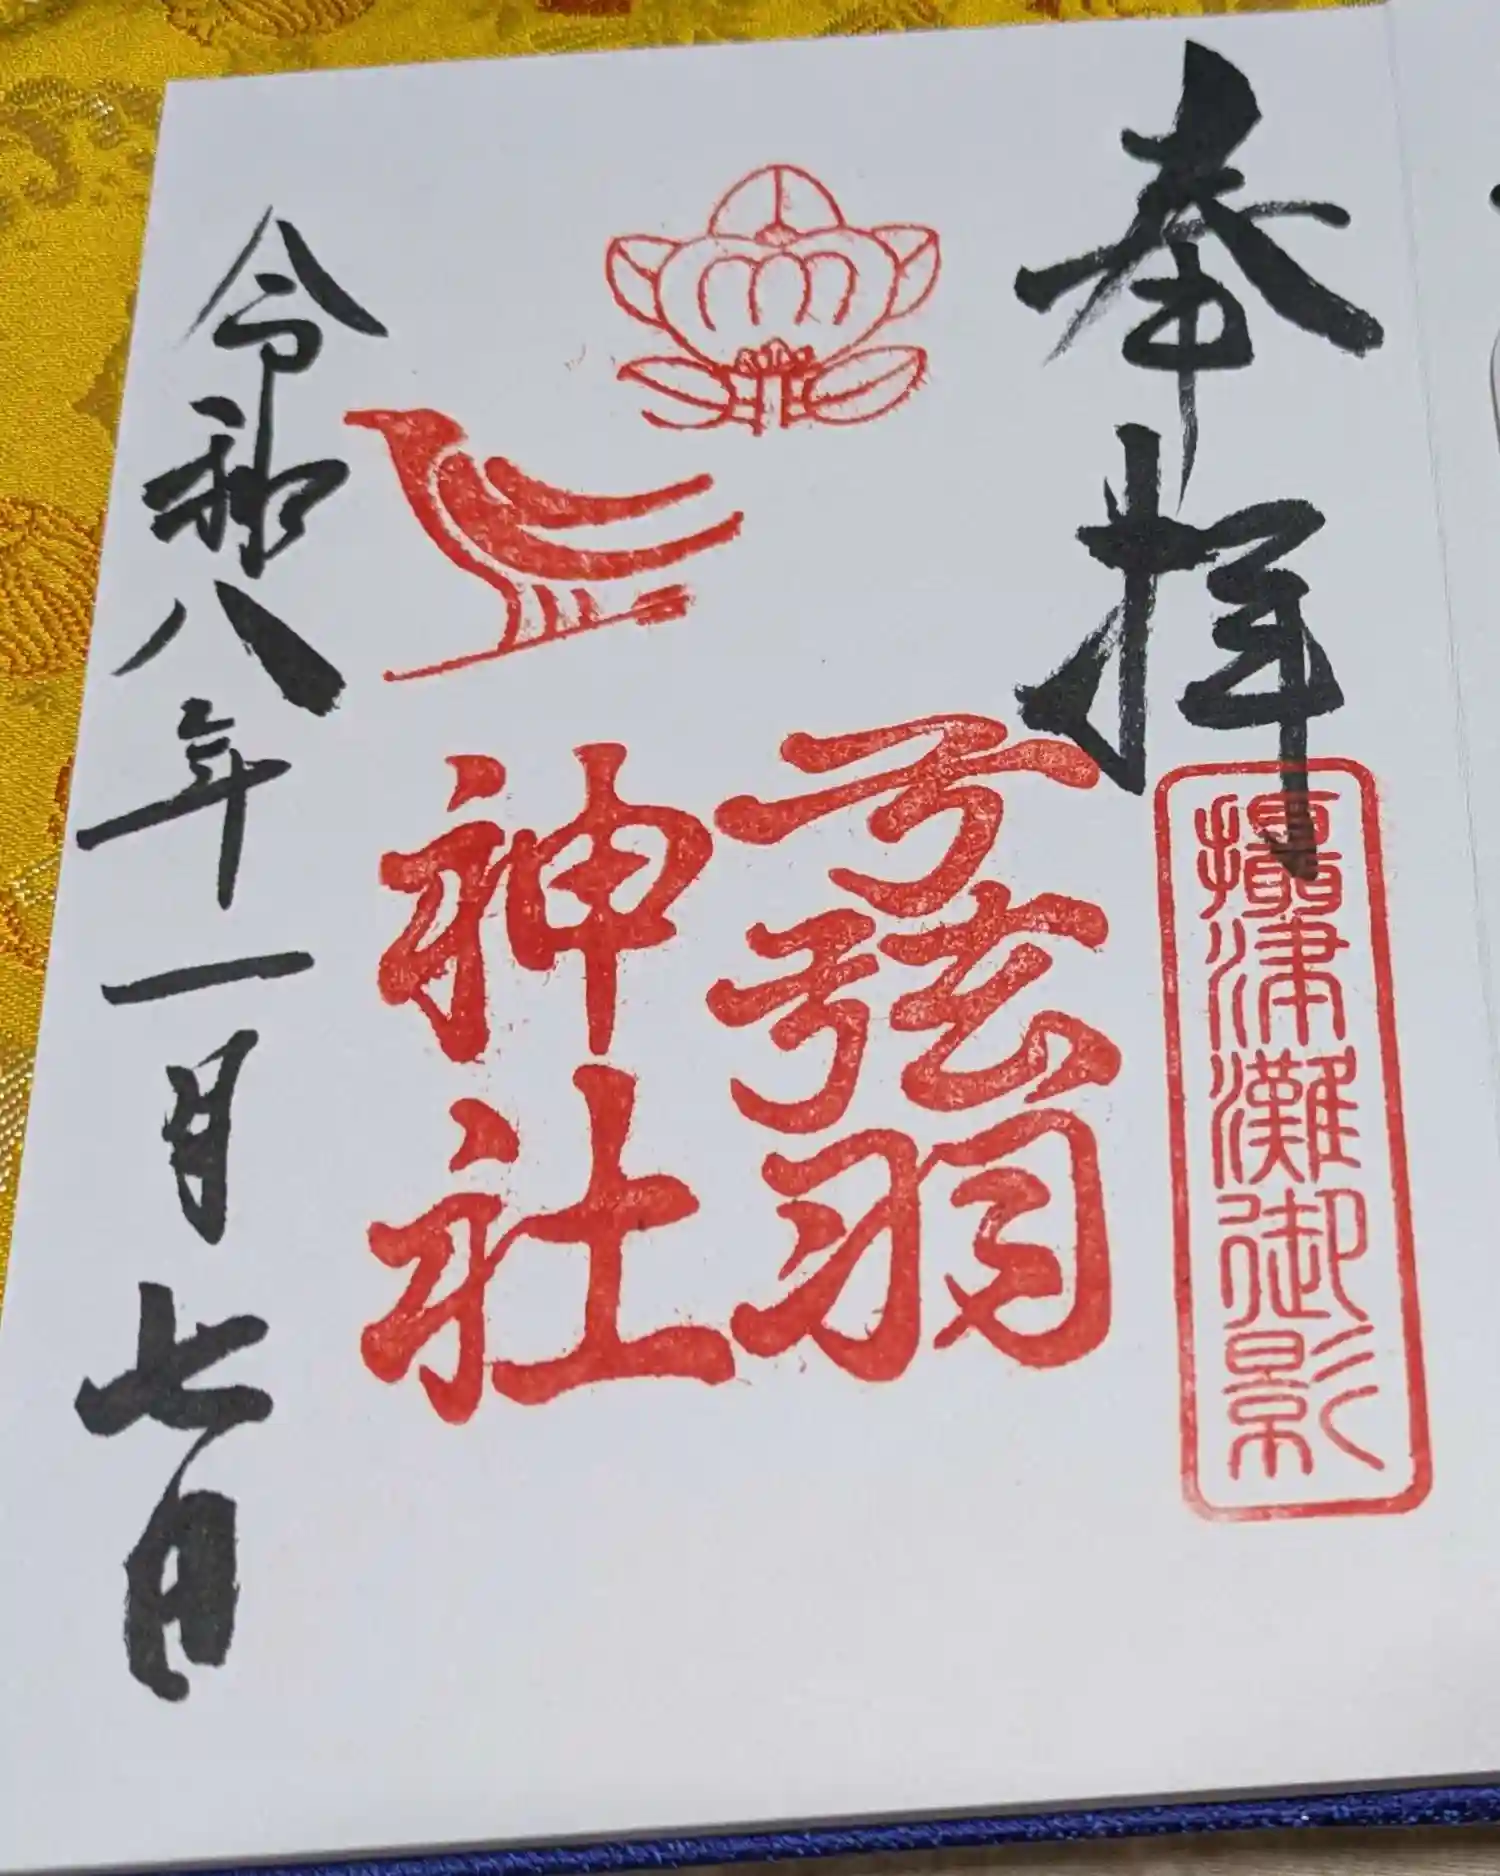 奉拝
攝津灘御影
弓弦羽
神社
令和八年一月七日